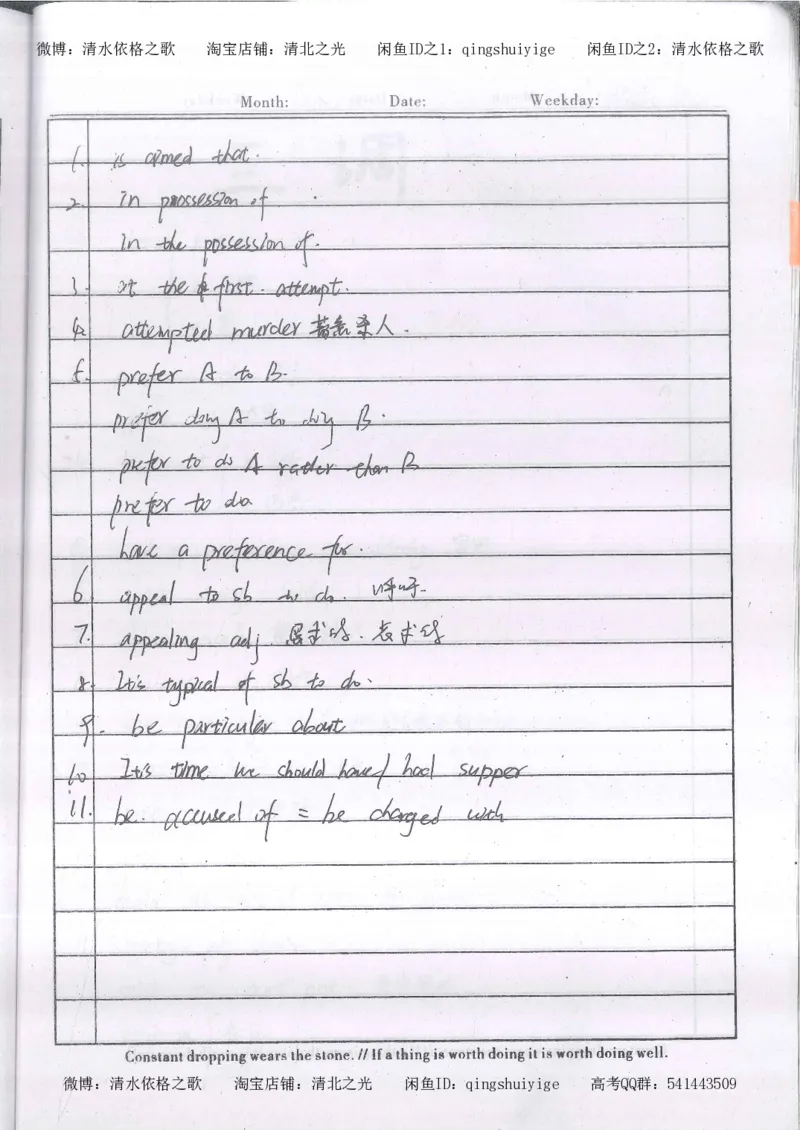 微博：清水依格之歌 淘宝店铺：清北之光 闲鱼ID之1：qingshuiyige 闲鱼ID之2：清水依格之歌
Month: Date: Weekday:
1. is aimed that.
2. in possession of
in the possession of.
3. at the first attempt.
4. attempted murder 蓄意杀人.
5. prefer A to B.
prefer doing A to doing B.
prefer to do A rather than B
prefer to do
have a preference for.
6. appeal to sb to do. 呼吁.
7. appealing adj.
8. It's typical of sb to do.
9. be particular about
10 It's time we should have / had supper
11. be accused of = be charged with
Constant dropping wears the stone. // If a thing is worth doing it is worth doing well.
微博：清水依格之歌 淘宝店铺：清北之光 闲鱼ID：qingshuiyige 高考QQ群：541443509